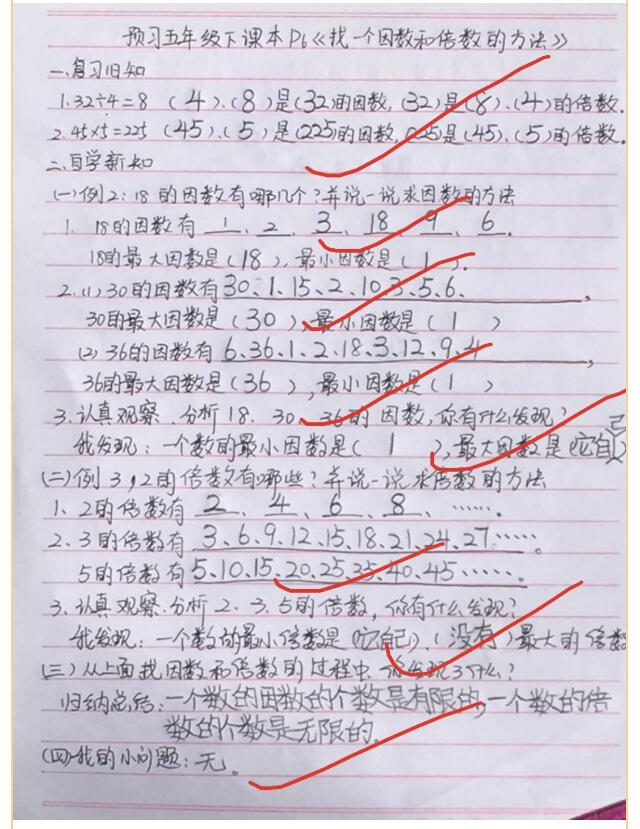 预习五年级下课本P6《找一个因数和倍数的方法》
一、复习旧知
1.32÷4=8 (4)、(8)是(32)的因数,(32)是(8)、(4)的倍数.
2.45×5=225 (45)、(5)是(225)的因数,(225)是(45)、(5)的倍数.
二、自学新知
(一)例2:18的因数有哪几个?并说一说求因数的方法
1. 18的因数有 1、2、3、18、9、6.
18的最大因数是(18),最小因数是(1).
2.(1)30的因数有30、1、15、2、10、3、5、6、,
30的最大因数是(30),最小因数是(1)
(2)36的因数有 6、36、1、2、18、3、12、9、4,
36的最大因数是(36),最小因数是(1)
3.认真观察、分析18、30、36的因数,你有什么发现?
我发现:一个数的最小因数是(1),最大因数是(它自己)
(二)例3,2的倍数有哪些?并说一说求倍数的方法
1、2的倍数有 2、4、6、8、……
2、3的倍数有 3、6、9、12、15、18、21、24、27……。
5的倍数有5、10、15、20、25、35、40、45……。
3.认真观察、分析2、3、5的倍数,你有什么发现?
我发现:一个数的最小倍数是(它自己)、(没有)最大的倍数
(三)从上面找因数和倍数的过程中,你发现了什么?
归纳总结:一个数的因数的个数是有限的,一个数的倍
数的个数是无限的.
(四)我的小问题:无。